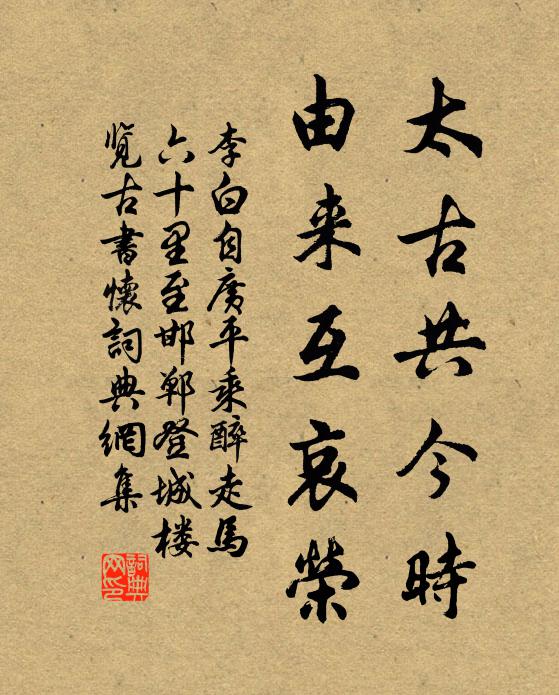 太古共今時
由来互哀榮
李白自廣平乘醉走馬
六十里至邯鄲登城楼
覽古書懷詞典網集
詞典网印